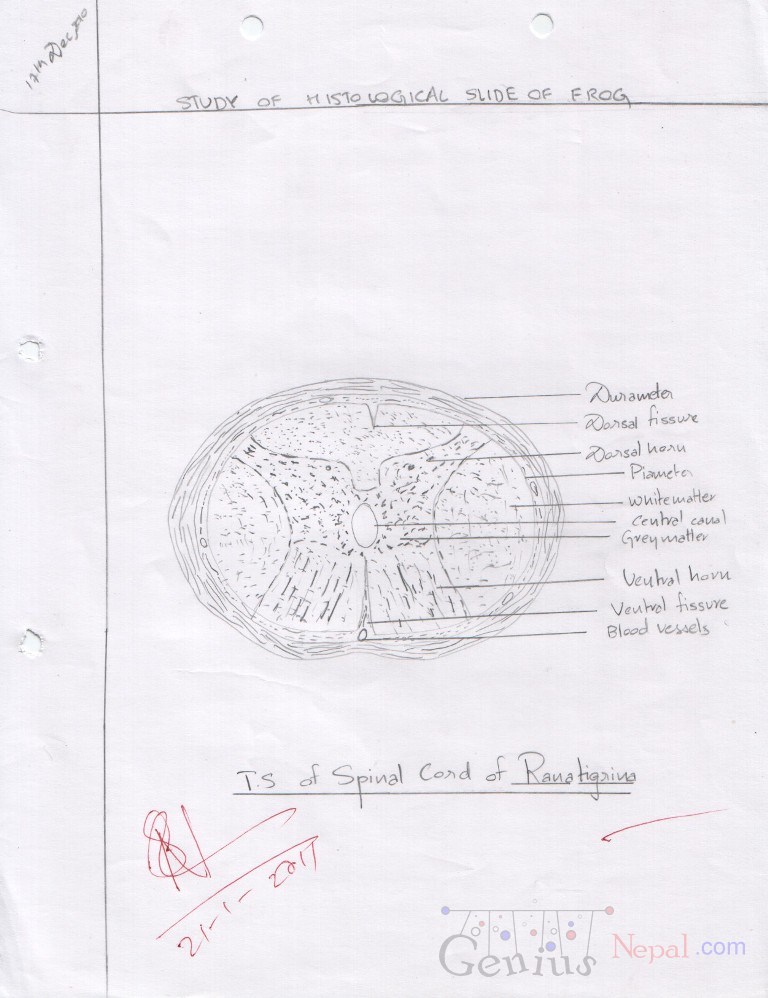 17th Dec,
STUDY OF HISTOLOGICAL SLIDE OF FROG
Durameter
Dorsal fissure
Dorsal horn
Piameter
White matter
Central canal
Grey matter
Ventral horn
Ventral fissure
Blood vessels
T.S of Spinal Cord of Ranatigrina
21-1-2017
Genius Nepal.com